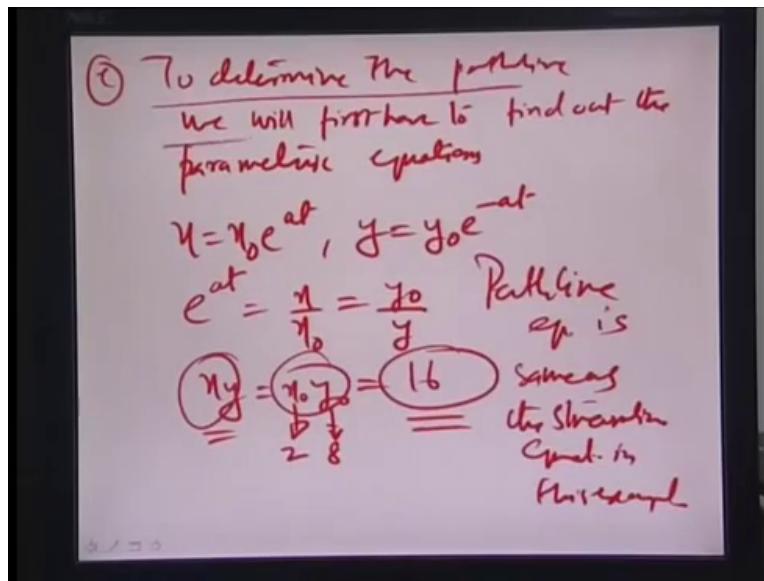 (i) To determine the pathline
we will first have to find out the
parametric equations
x = x₀e^at, y = y₀e^-at
e^at = x/x₀ = y₀/y
xy = x₀y₀ = 16
2 8
Pathline
eq is
same as
the streamline
equat. in
this exampl